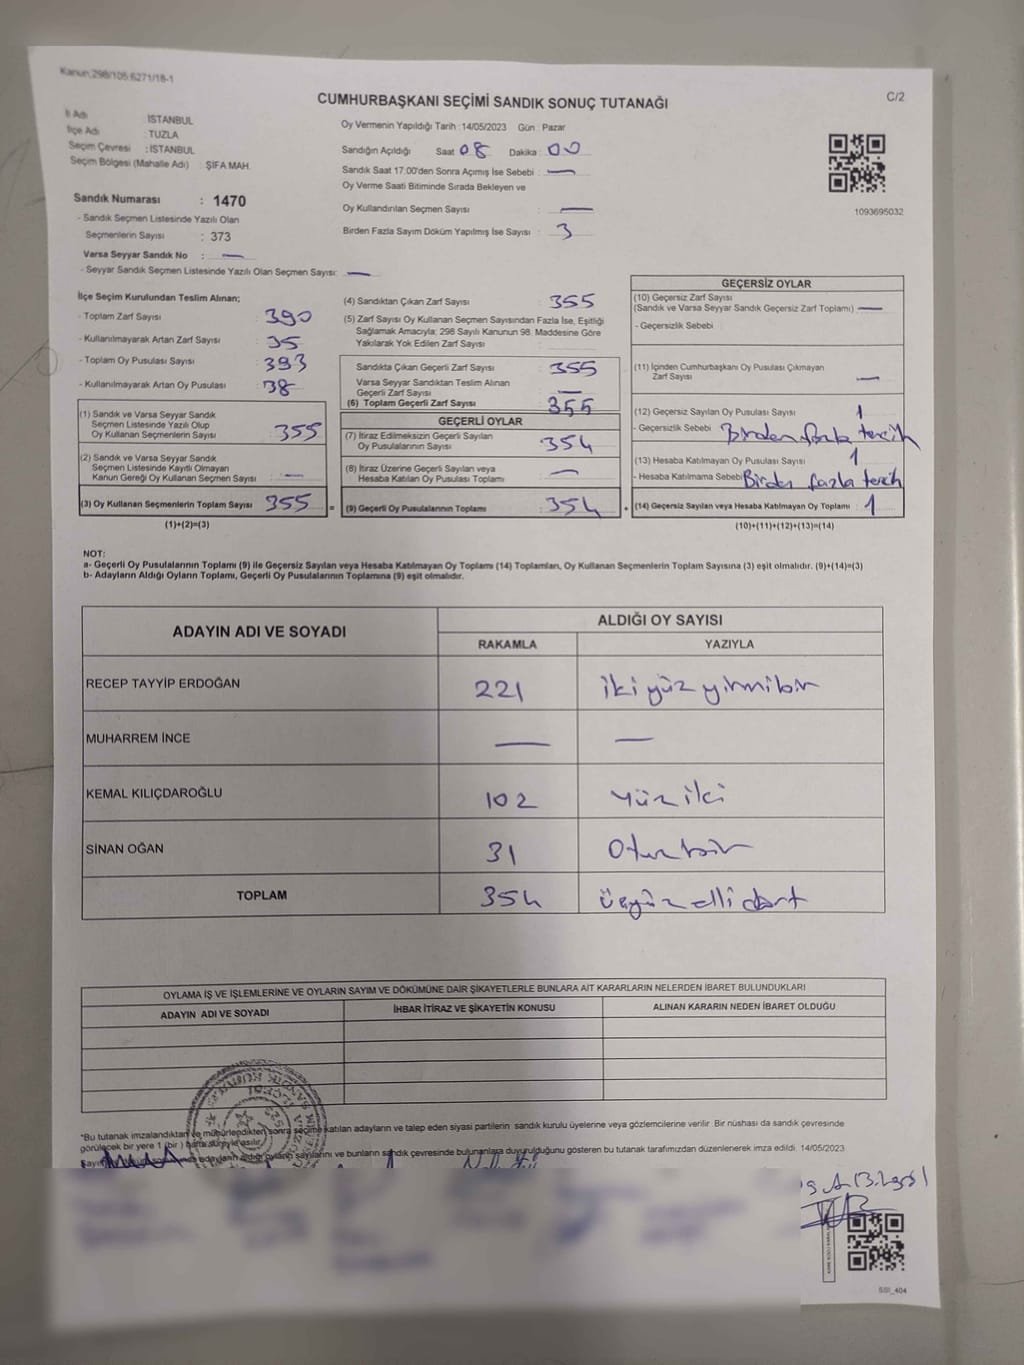 Kanun;298/105;6271/18-1
C/2
CUMHURBAŞKANI SEÇİMİ SANDIK SONUÇ TUTANAĞI
İl Adı : İSTANBUL
İlçe Adı : TUZLA
Seçim Çevresi : İSTANBUL
Seçim Bölgesi (Mahalle Adı) : ŞİFA MAH.
Oy Vermenin Yapıldığı Tarih : 14/05/2023 Gün : Pazar
Sandığın Açıldığı Saat 08 Dakika : 00
Sandık Saat 17:00'den Sonra Açımış İse Sebebi : —
Oy Verme Saati Bitiminde Sırada Bekleyen ve
Oy Kullandırılan Seçmen Sayısı : —
Birden Fazla Sayım Döküm Yapılmış İse Sayısı : 3
1093695032
Sandık Numarası : 1470
- Sandık Seçmen Listesinde Yazılı Olan
Seçmenlerin Sayısı : 373
Varsa Seyyar Sandık No : —
- Seyyar Sandık Seçmen Listesinde Yazılı Olan Seçmen Sayısı: —
İlçe Seçim Kurulundan Teslim Alınan;
- Toplam Zarf Sayısı : 390
- Kullanılmayarak Artan Zarf Sayısı : 35
- Toplam Oy Pusulası Sayısı : 393
- Kullanılmayarak Artan Oy Pusulası : 38
(1) Sandık ve Varsa Seyyar Sandık
Seçmen Listesinde Yazılı Olup
Oy Kullanan Seçmenlerin Sayısı : 355
(2) Sandık ve Varsa Seyyar Sandık
Seçmen Listesinde Kayıtlı Olmayan
Kanun Gereği Oy Kullanan Seçmen Sayısı : —
(3) Oy Kullanan Seçmenlerin Toplam Sayısı : 355
(1)+(2)=(3)
(4) Sandıktan Çıkan Zarf Sayısı : 355
(5) Zarf Sayısı Oy Kullanan Seçmen Sayısından Fazla İse, Eşitliği
Sağlamak Amacıyla; 298 Sayılı Kanunun 98. Maddesine Göre
Yakılarak Yok Edilen Zarf Sayısı :
Sandıkta Çıkan Geçerli Zarf Sayısı : 355
Varsa Seyyar Sandıktan Teslim Alınan
Geçerli Zarf Sayısı : —
(6) Toplam Geçerli Zarf Sayısı : 355
GEÇERLİ OYLAR
(7) İtiraz Edilmeksizin Geçerli Sayılan
Oy Pusulalarının Sayısı : 354
(8) İtiraz Üzerine Geçerli Sayılan veya
Hesaba Katılan Oy Pusulası Toplamı : —
= (9) Geçerli Oy Pusulalarının Toplamı : 354 +
GEÇERSİZ OYLAR
(10) Geçersiz Zarf Sayısı
(Sandık ve Varsa Seyyar Sandık Geçersiz Zarf Toplamı) : —
- Geçersizlik Sebebi
(11) İçinden Cumhurbaşkanı Oy Pusulası Çıkmayan
Zarf Sayısı : —
(12) Geçersiz Sayılan Oy Pusulası Sayısı : 1
- Geçersizlik Sebebi : Birden fazla tercih
(13) Hesaba Katılmayan Oy Pusulası Sayısı : 1
- Hesaba Katılmama Sebebi: Birden fazla tercih
(14) Geçersiz Sayılan veya Hesaba Katılmayan Oy Toplamı : 1
(10)+(11)+(12)+(13)=(14)
NOT:
a- Geçerli Oy Pusulalarının Toplamı (9) ile Geçersiz Sayılan veya Hesaba Katılmayan Oy Toplamı (14) Toplamları, Oy Kullanan Seçmenlerin Toplam Sayısına (3) eşit olmalıdır. (9)+(14)=(3)
b- Adayların Aldığı Oyların Toplamı, Geçerli Oy Pusulalarının Toplamına (9) eşit olmalıdır.
ADAYIN ADI VE SOYADI ALDIĞI OY SAYISI
RAKAMLA YAZIYLA
RECEP TAYYİP ERDOĞAN 221 iki yüz yirmi bir
MUHARREM İNCE — —
KEMAL KILIÇDAROĞLU 102 Yüz iki
SİNAN OĞAN 31 Otuz bir
TOPLAM 354 üçyüz elli dört
OYLAMA İŞ VE İŞLEMLERİNE VE OYLARIN SAYIM VE DÖKÜMÜNE DAİR ŞİKAYETLERLE BUNLARA AİT KARARLARIN NELERDEN İBARET BULUNDUKLARI
ADAYIN ADI VE SOYADI İHBAR İTİRAZ VE ŞİKAYETİN KONUSU ALINAN KARARIN NEDEN İBARET OLDUĞU
*Bu tutanak imzalandıktan ve mühürlendikten sonra seçime katılan adayların ve talep eden siyasi partilerin sandık kurulu üyelerine veya gözlemcilerine verilir. Bir nüshası da sandık çevresinde
görülecek bir yere 1 (bir) hafta süreyle asılır.
adayların aldığı oyların sayılarını ve bunların sandık çevresinde bulunanlara duyurulduğunu gösteren bu tutanak tarafımızdan düzenlenerek imza edildi. 14/05/2023
SSI_404